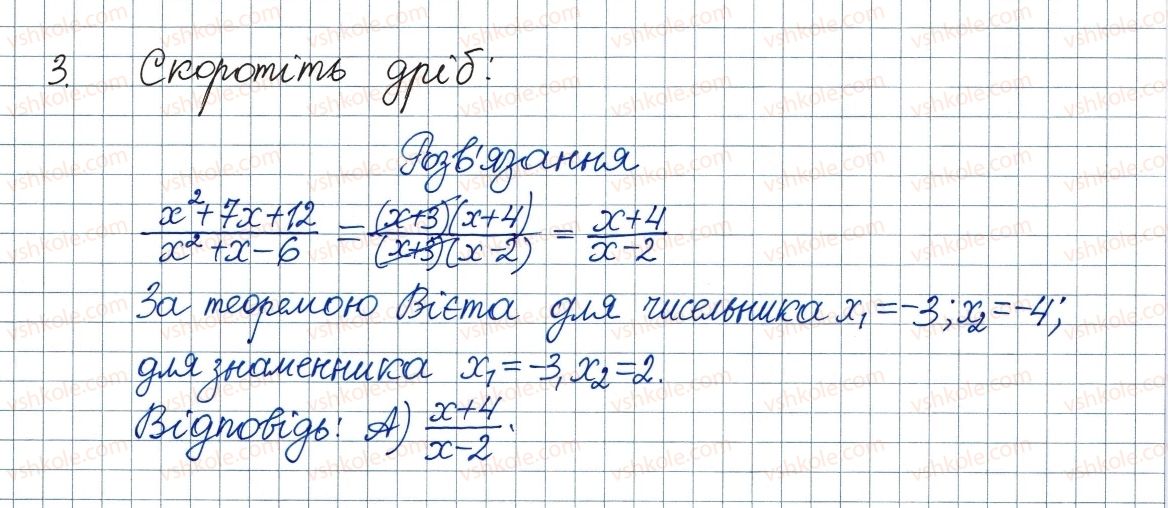 3. Скоротіть дріб:
Розв'язання
x²+7x+12 / x²+x-6 = (x+3)(x+4) / (x+3)(x-2) = x+4 / x-2
За теоремою Вієта для чисельника x₁=-3; x₂=-4;
для знаменника x₁=-3, x₂=2.
Відповідь: А) x+4 / x-2.
vshkole.com